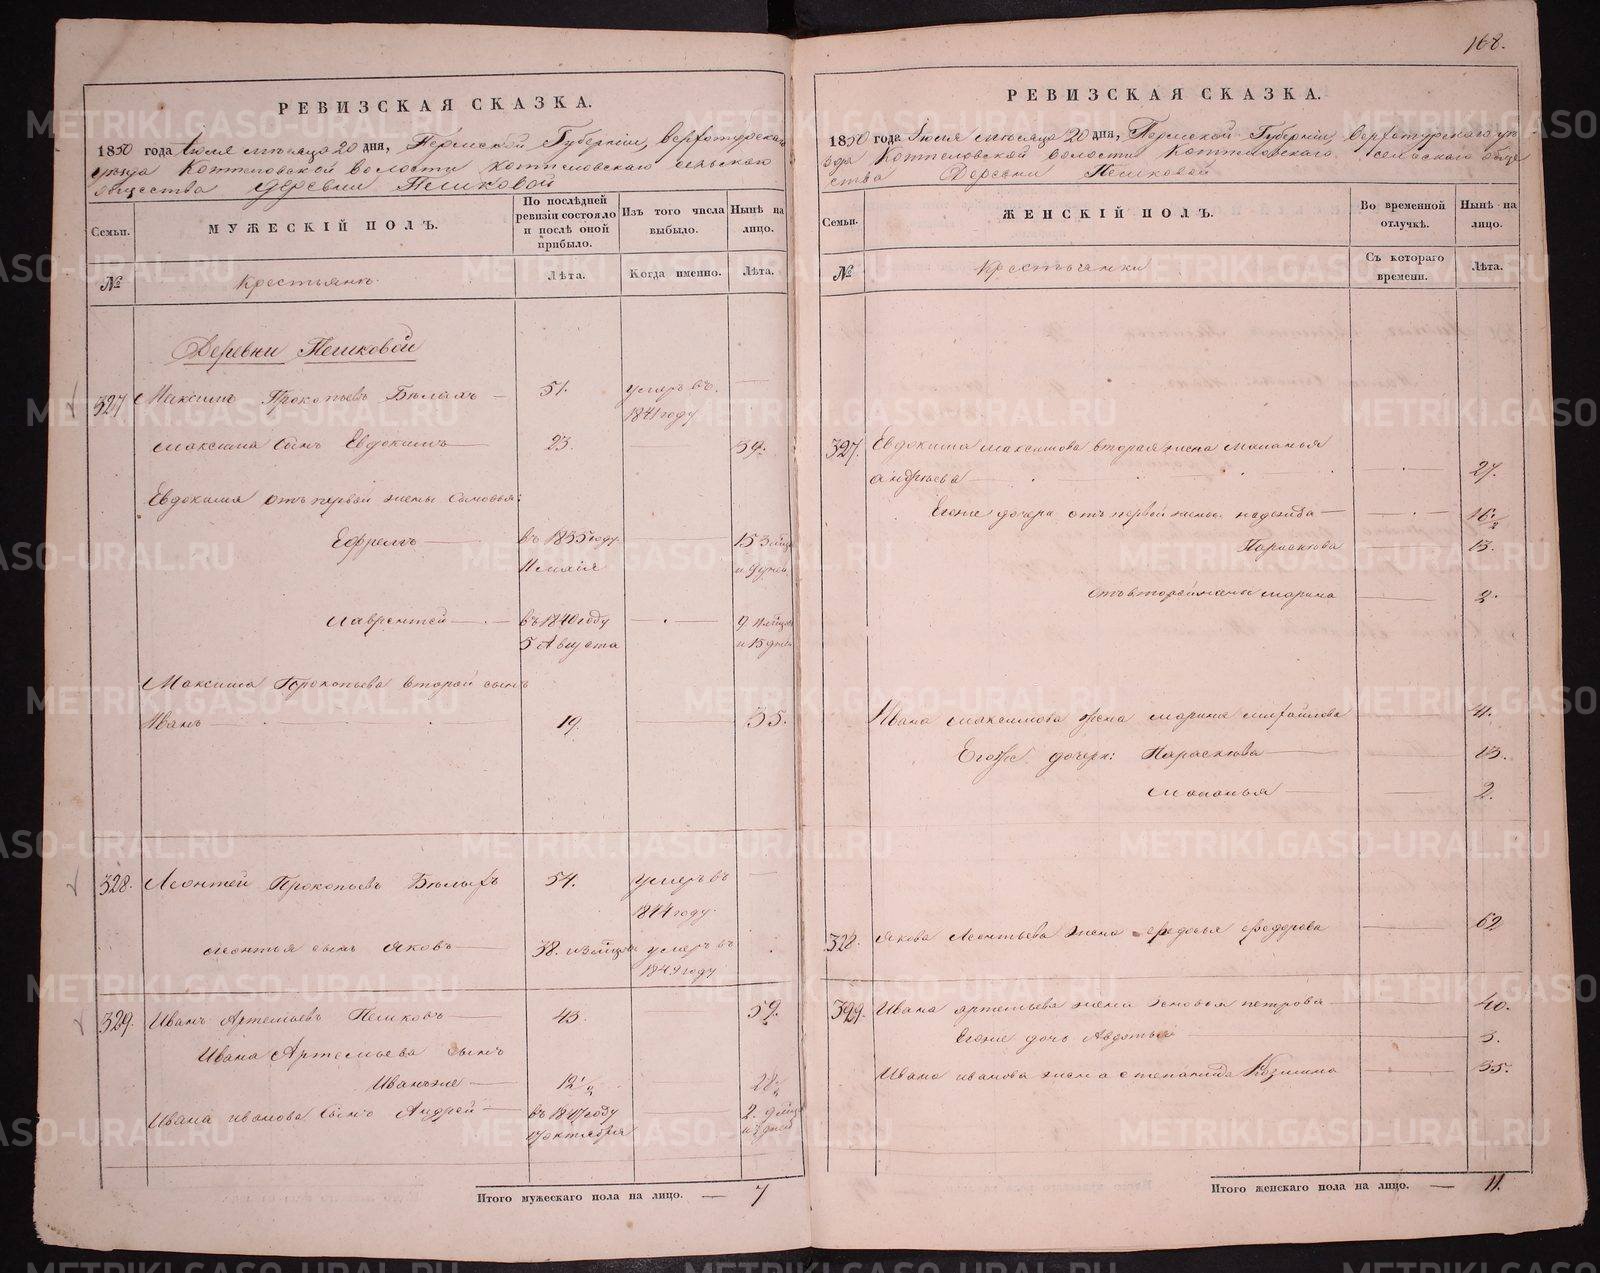 168.
РЕВИЗСКАЯ СКАЗКА.
1850 года Іюля мѣсяца 20 дня, Пермской Губерніи, Верхотурскаго
уѣзда Коптеловской волости Коптеловскаго сельскаго
общества Деревни Пешковой
Семьи.
МУЖЕСКІЙ ПОЛЪ.
По послѣдней ревизіи состояло и послѣ оной прибыло.
Изъ того числа выбыло.
Нынѣ на лицо.
№
Крестьянъ.
Лѣта.
Когда именно.
Лѣта.
Деревни Пешковой
327 Максимъ Прокопьевъ Бѣлыхъ — 51. умеръ въ —
1841 году
Максима сынъ Евдокимъ — 23. 39.
Евдокима отъ первой жены сыновья:
Ефремъ — въ 1835 году 15
и 9 дней
Лаврентей — въ 1840 году — 9
5 Августа и 15 дней
Максима Прокопьева второй сынъ
Иванъ — 19. 35.
328. Леонтей Прокопьевъ Бѣлыхъ 54. умеръ въ —
1844 году.
Леонтья сынъ Яковъ — 38. умеръ въ
1849 году
329. Иванъ Артемьевъ Пешковъ — 43. 59.
Ивана Артемьева сынъ
Иванъ же — 12½ 28½
Ивана Иванова сынъ Андрей — въ 1847 году 2. 9
17 октября и 3 дней
Итого мужескаго пола на лицо. — 7
РЕВИЗСКАЯ СКАЗКА.
1850 года Іюля мѣсяца 20 дня, Пермской Губерніи, Верхотурскаго уѣ
зда Коптеловской волости Коптеловскаго сельскаго обще
ства Деревни Пешковой
Семьи.
ЖЕНСКІЙ ПОЛЪ.
Во временной отлучкѣ.
Нынѣ на лицо.
№
Крестьянки
Съ котораго времени.
Лѣта.
327. Евдокима Максимова вторая жена Маланья
Андреева — 27.
Егоже дочери отъ первой жены Надежда — 16½
Парасковья 13.
отъ второй жены Марина 2.
Ивана Максимова жена Марина Михайлова 41.
Егоже дочери: Парасковья — 13.
Маланья — 2.
328. Якова Леонтьева жена Федосья Федорова 62
329. Ивана Артемьева жена Зеновья Петрова 40.
Егоже дочь Авдотья 3.
Ивана Иванова жена Степанида Козмина 35.
Итого женскаго пола на лицо. — 11.
METRIKI.GASO-URAL.RU